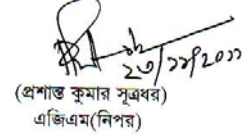 ২৩/১১/২০১১
(প্রশান্ত কুমার সূত্রধর)
এজিএম(নিপর)